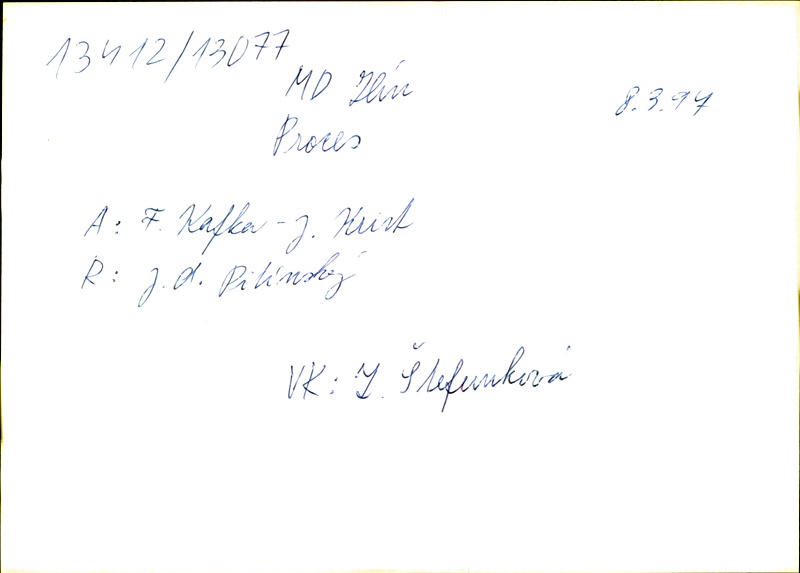 13412/13077
MD Zlín
8.3.97
Proces
A: F. Kafka - J. Krist
R: J. A. Pitínský
VK: Z. Štefunková